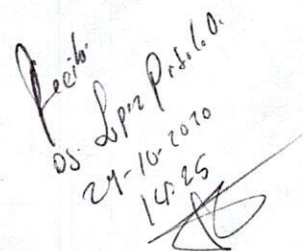 Recibí
DS. Lopez Portillo O.
29-10-2020
14:25